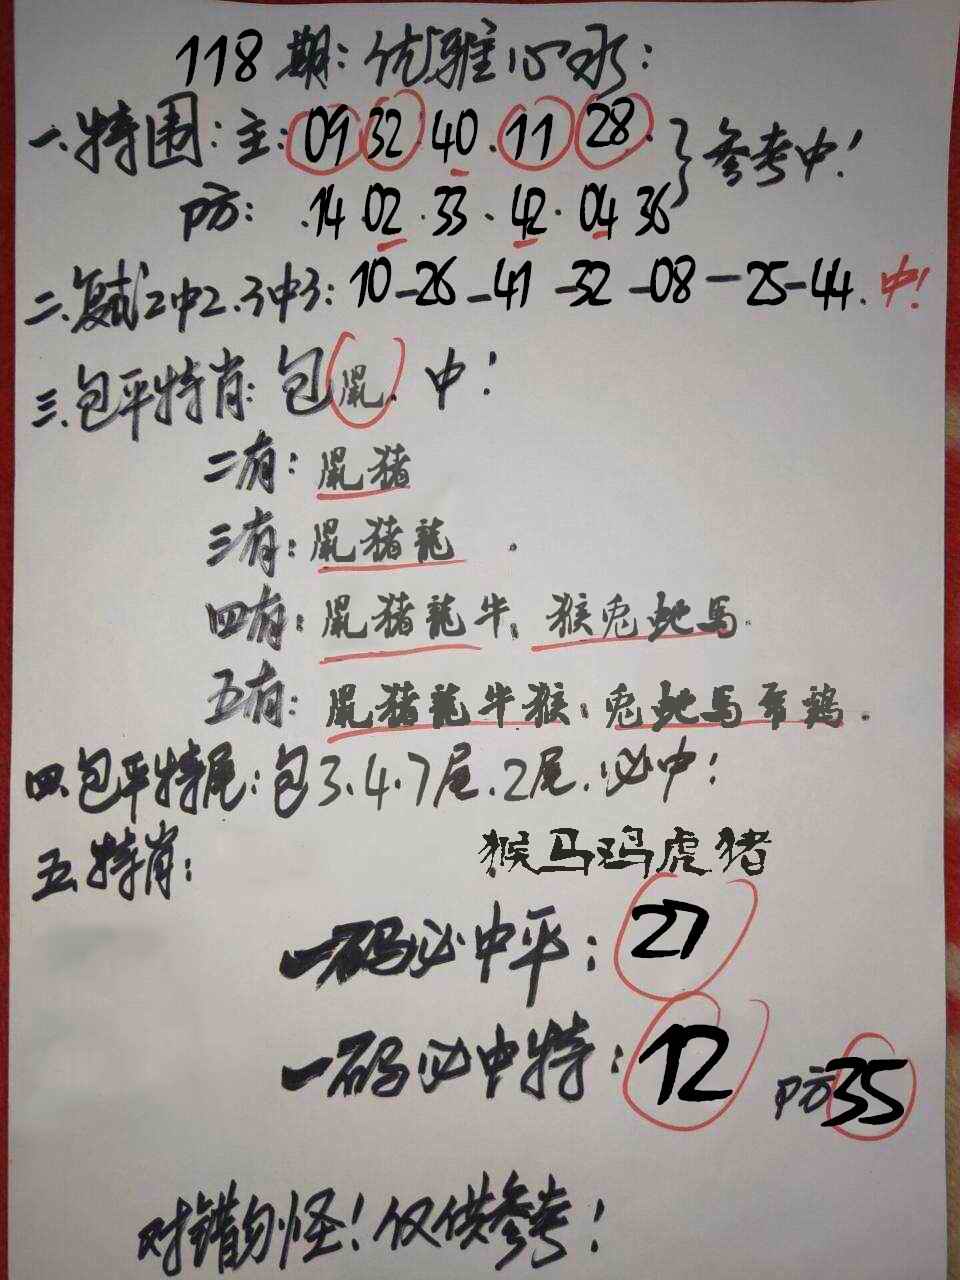 118期:优雅心水:
一.特围:主:09 32·40·11·28·
防:·14·02·33·42·04 36 参考中!
二.复式2中2.3中3:10-26-41-32-08-25-44.中!
三.包平特肖:包鼠.中!
二有:鼠猪
三有:鼠猪龍.
四有:鼠猪龍牛;猴兎蛇馬.
五有:鼠猪龍牛猴;兎蛇馬羊鷄.
四.包平特尾:包3.4.7尾.2尾.必中!
五.特肖:猴马鸡虎猪
一码必中平:27
一码必中特:12 防35
对错勿怪!仅供参考!